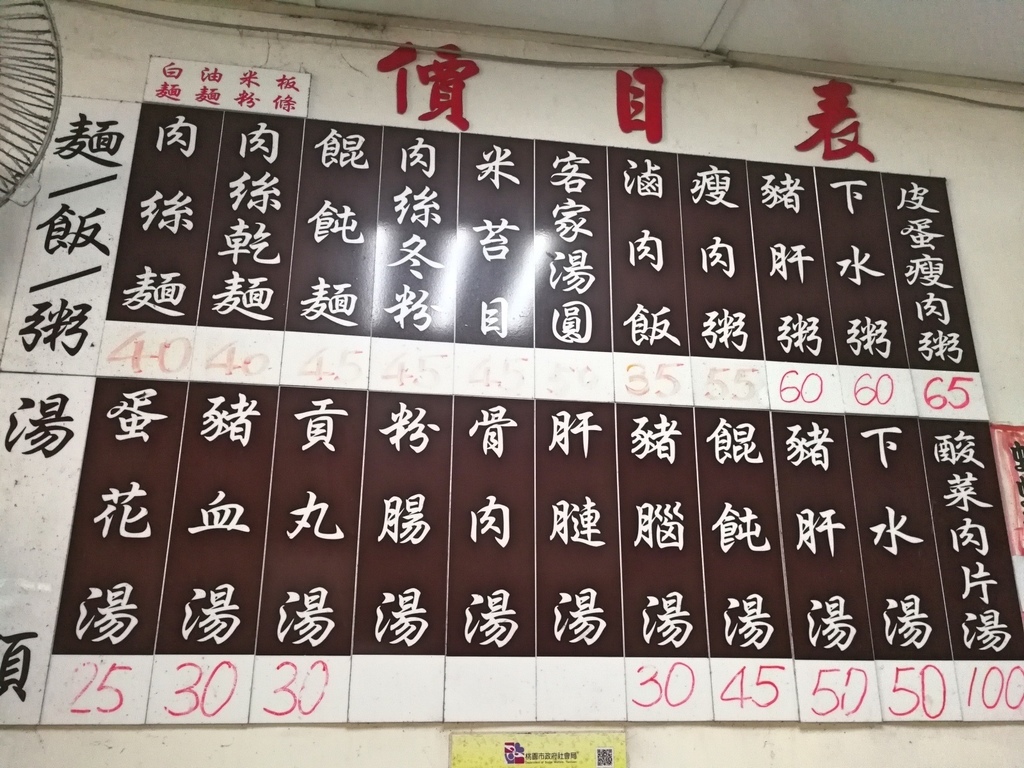 價目表
白麵 油麵 米粉 板條
麵/飯/粥
肉絲麵 40
肉絲乾麵 40
餛飩麵 45
肉絲冬粉 45
米苔目 45
客家湯圓
滷肉飯 35
瘦肉粥 55
豬肝粥 60
下水粥 60
皮蛋瘦肉粥 65
湯
蛋花湯 25
豬血湯 30
貢丸湯 30
粉腸湯
骨肉湯
肝膁湯
豬腦湯 30
餛飩湯 45
豬肝湯 50
下水湯 50
酸菜肉片湯 100
桃園市政府社會局